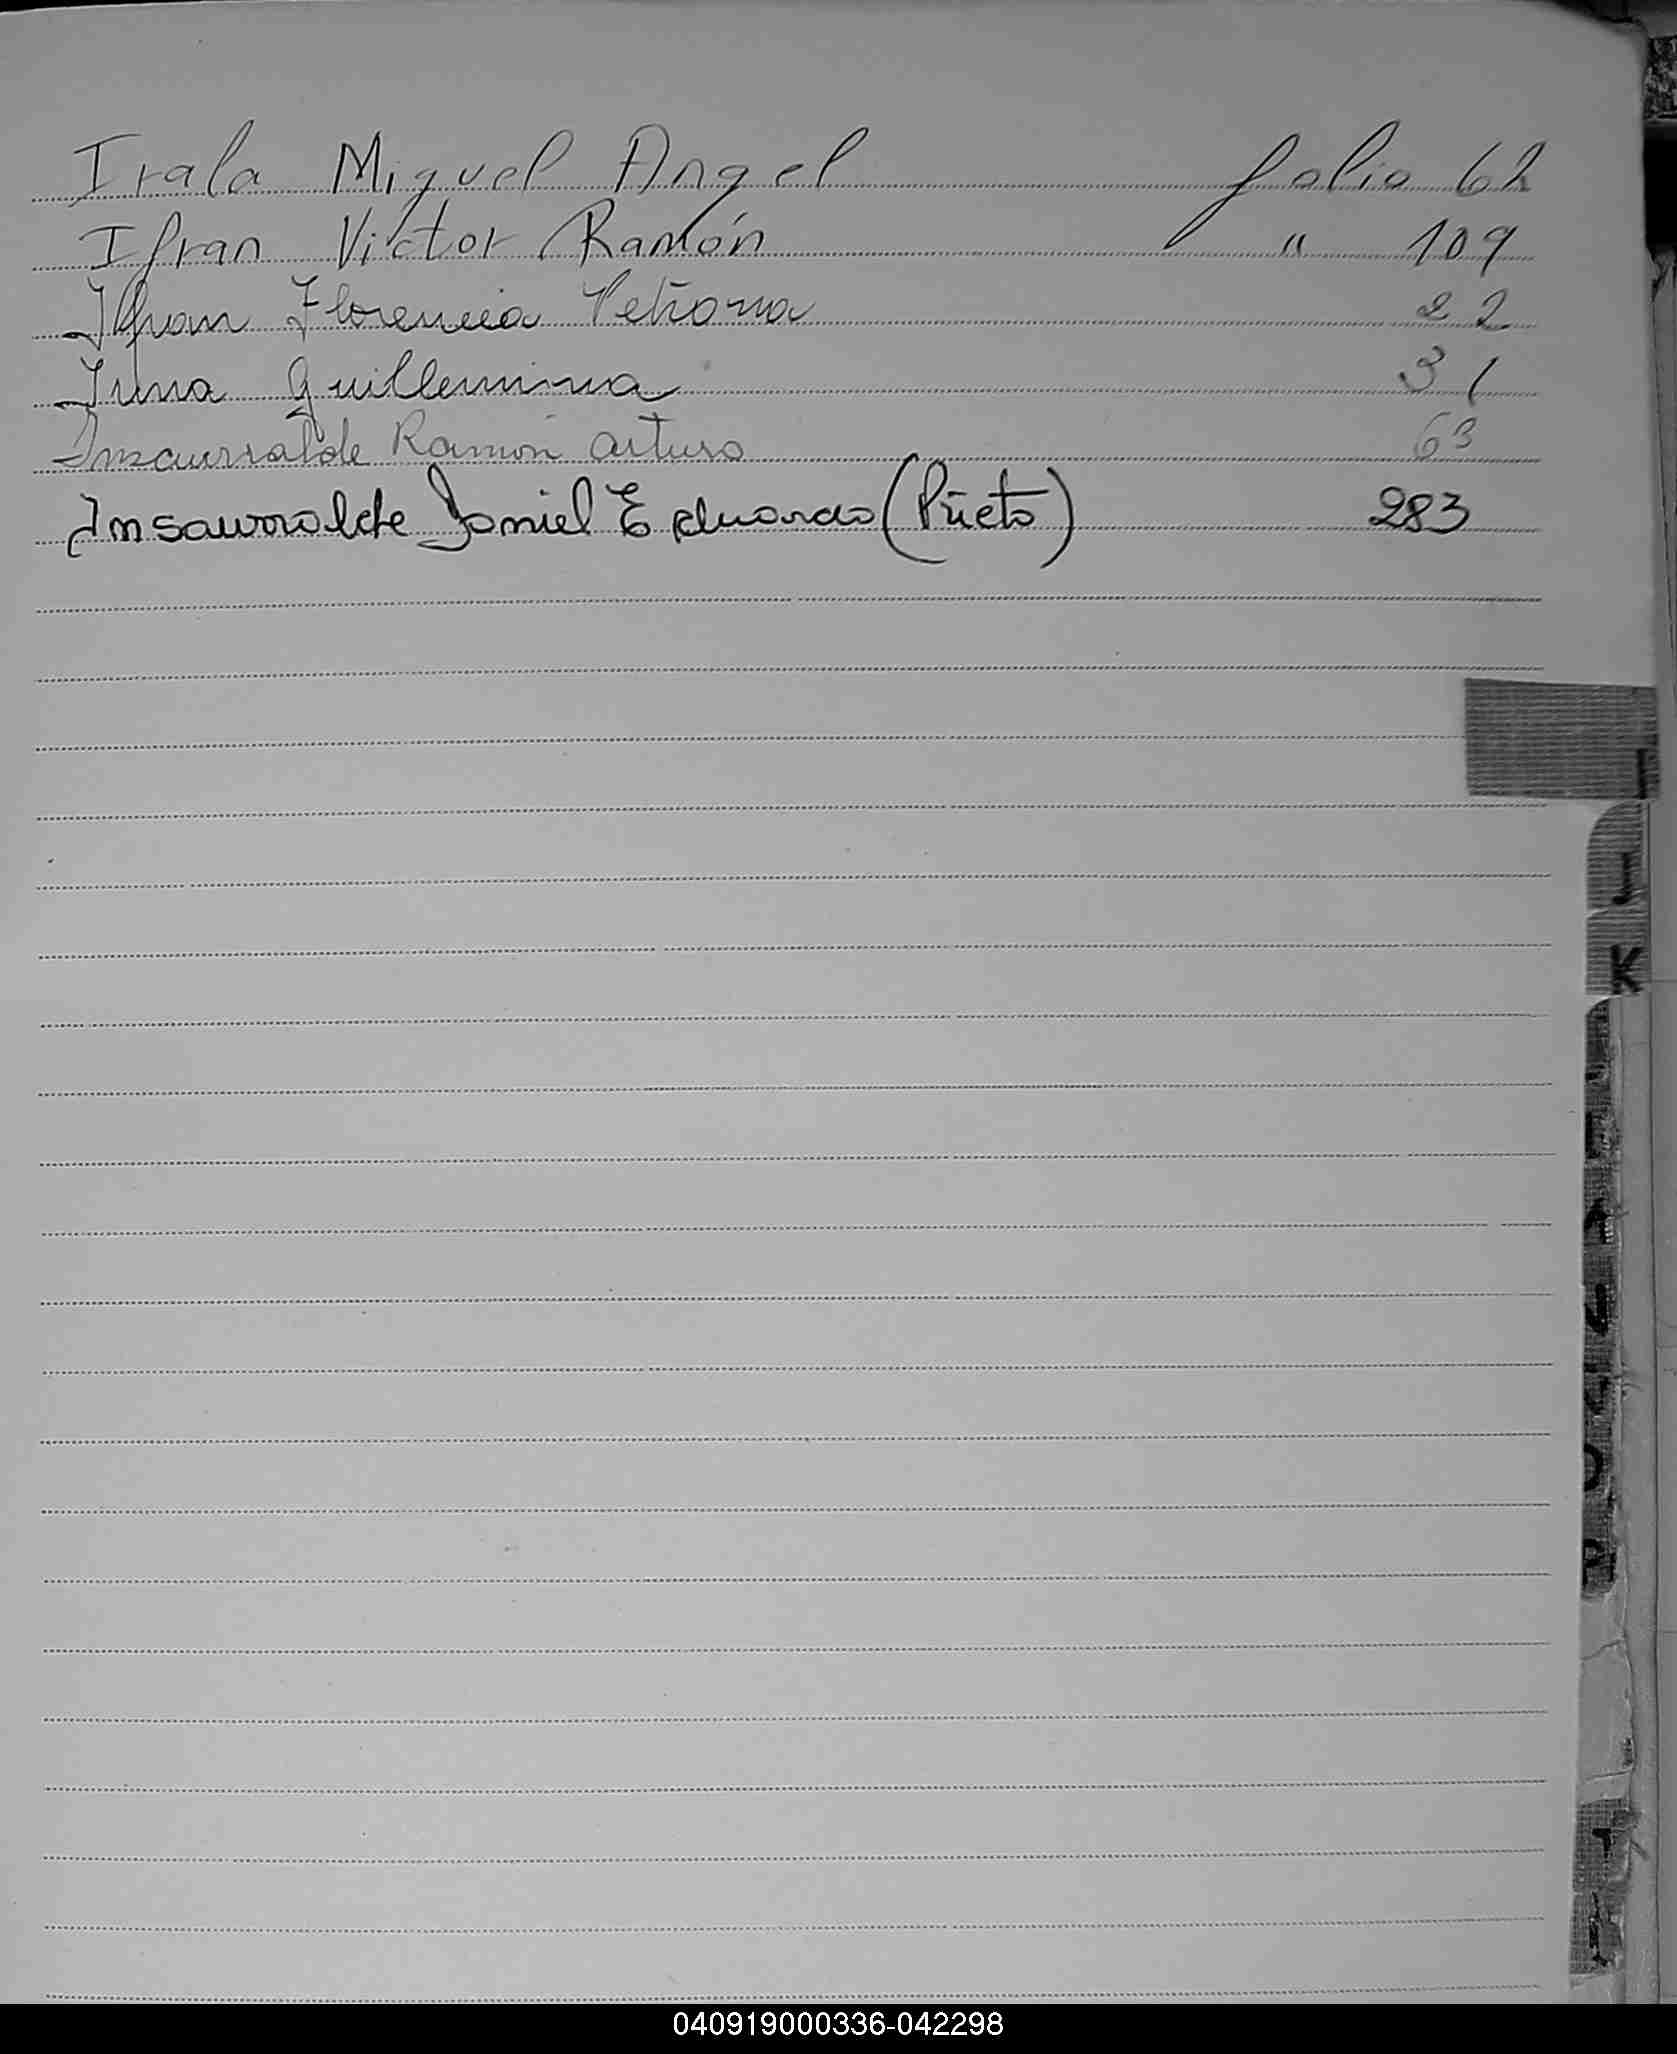 Irala Miguel Angel folio 62
Ifran Victor Ramón " 109
Ifran Florencia Petrona 22
Guillermina 31
Inzaurralde Ramón Arturo 63
Insaurralde Daniel Eduardo (Prieto) 283
I
J
K
040919000336-042298